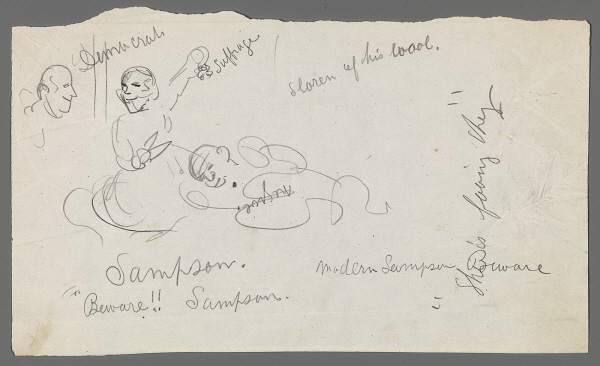 Democrats
Suffrage
Sloren of his wool.
Sampson.
"Beware!! Sampson.
Modern Sampson Beware
"She is